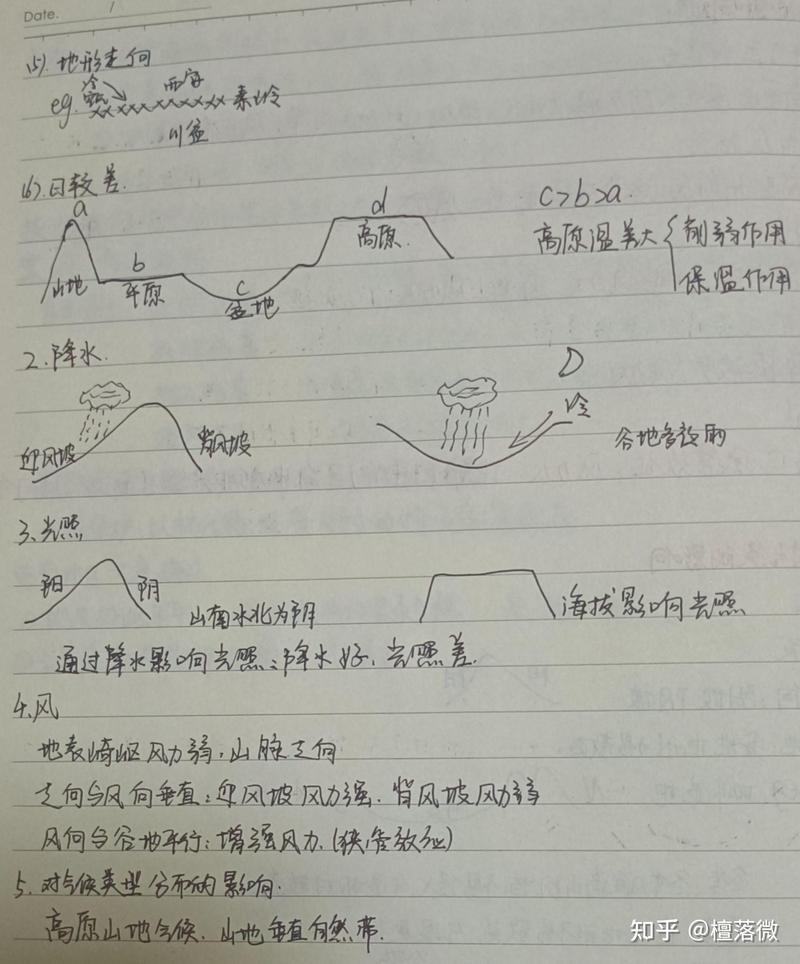 Date. 1
(5). 地形走向
冷
西安
eg. 秦岭
川盆
(6). 日较差.
a
山地
b
平原
c
盆地
d
高原.
c>b>a.
高原温差大 { 削弱作用
保温作用
2. 降水.
迎风坡
背风坡
冷
谷地多夜雨
3、光照
阳
阴
山南水北为阳
海拔影响光照
通过降水影响光照：降水好、光照差.
4.风
地表崎岖风力弱，山脉走向
走向与风向垂直：迎风坡风力强、背风坡风力弱
风向与谷地平行：增强风力.(狭管效应)
5. 对气候类型分布的影响.
高原山地气候、山地垂直自然带.
知乎 @檀落微